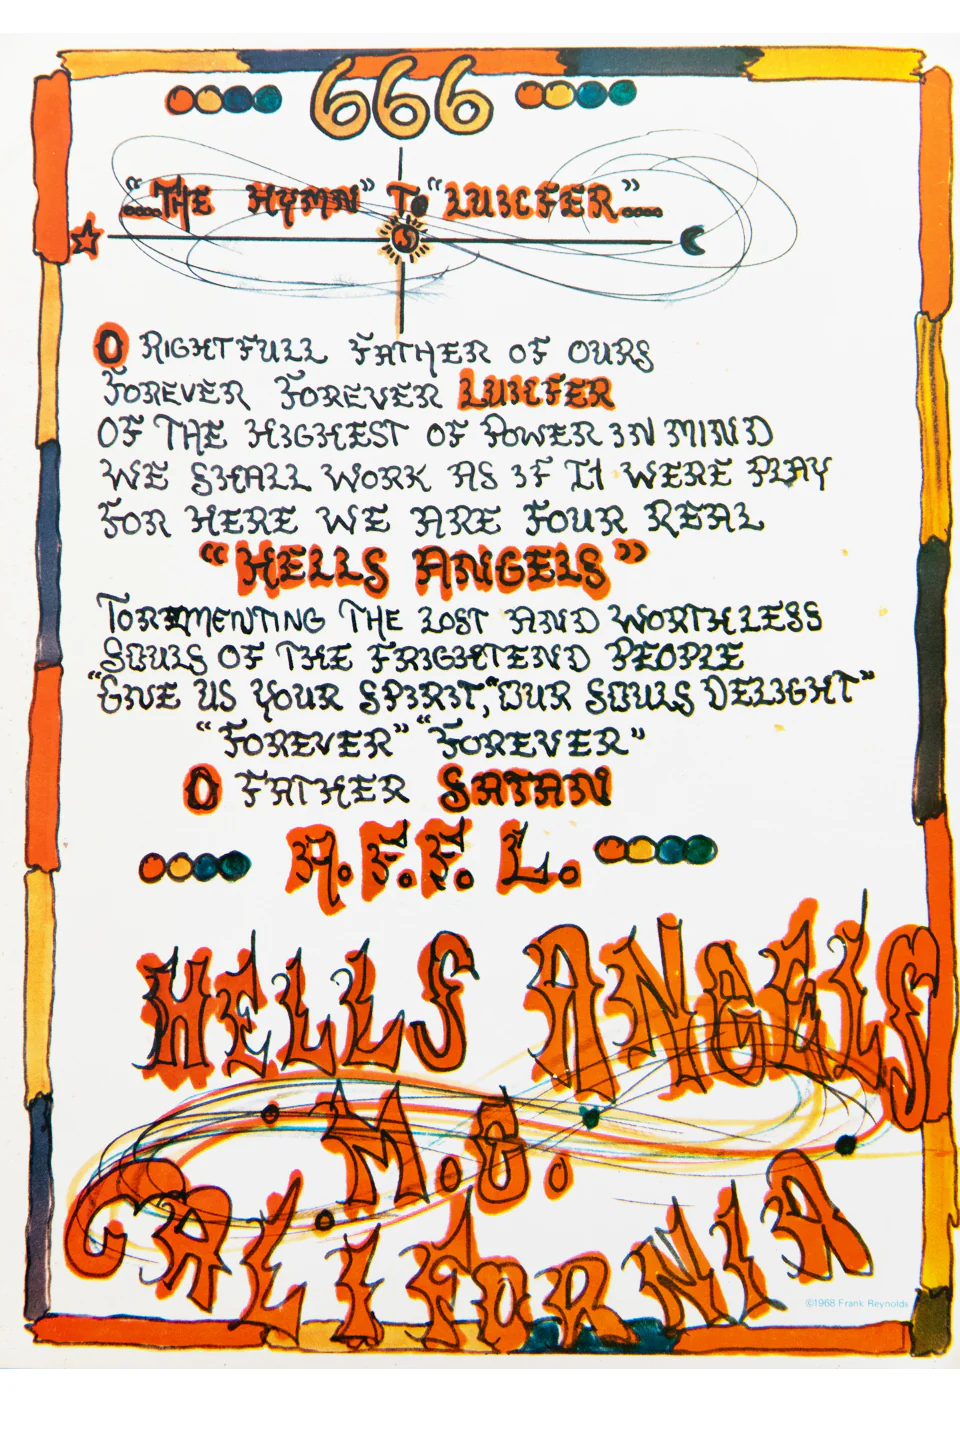 666
"THE HYMN" TO "LUICFER"
O RIGHTFULL FATHER OF OURS
FOREVER FOREVER LUICFER
OF THE HIGHEST OF POWER IN MIND
WE SHALL WORK AS IF IT WERE PLAY
FOR HERE WE ARE FOUR REAL
"HELLS ANGELS"
TORMENTING THE LOST AND WORTHLESS
SOULS OF THE FRIGHTEND PEOPLE
"GIVE US YOUR SPIRIT," OUR SOULS DELIGHT"
"FOREVER" "FOREVER"
O FATHER SATAN
A.F.F. L.
HELLS ANGELS
M.C.
CALIFORNIA
©1968 Frank Reynolds